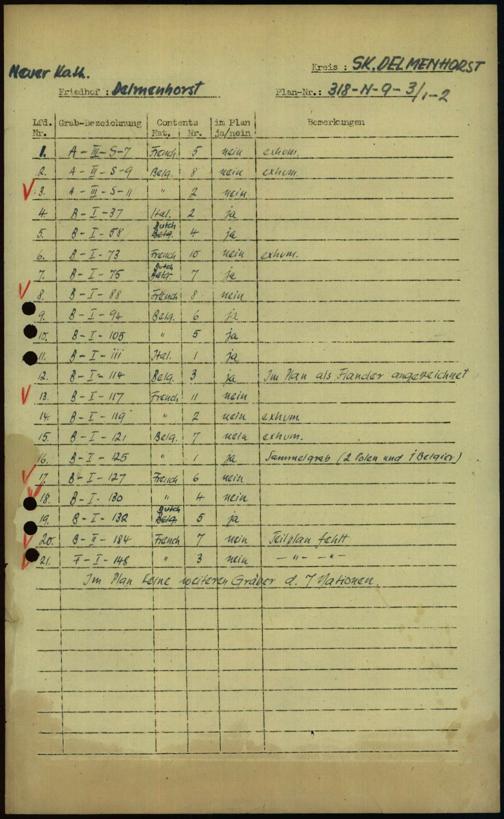 Kreis : SK. DELMENHORST
Neuer Kath.
Friedhof : Delmenhorst Plan-Nr.: 318-N-9-3/1-2
Lfd. Nr. Grab-Bezeichnung Contents Nat. Nr. im Plan ja/nein Bemerkungen
1. A - III - S - 7 French 5 nein exhum.
2. A - III - S - 9 Belg. 8 nein exhum.
3. A - III - S - 11 " 2 nein
4. B - I - 37 Ital. 2 ja
5. B - I - 58 Dutch Belg. 4 ja
6. B - I - 73 French 10 nein exhum.
7. B - I - 75 Dutch Belg. 7 ja
8. B - I - 88 French 8 nein
9. B - I - 94 Belg. 6 ja
10. B - I - 105 " 5 ja
11. B - I - 111 Ital. 1 ja
12. B - I - 114 Belg. 3 ja Im Plan als Flander angezeichnet
13. B - I - 117 French 11 nein
14. B - I - 119 " 2 nein exhum.
15. B - I - 121 Belg. 7 nein exhum.
16. B - I - 125 " 1 ja Sammelgrab (2 Polen und 1 Belgier)
17. B - I - 127 French 6 nein
18. B - I - 130 " 4 nein
19. B - I - 132 Dutch Belg. 5 ja
20. B - II - 184 French 7 nein Teilplan fehlt
21. F - I - 148 " 3 nein - " - - " -
Im Plan keine weiteren Gräber d. 7 Nationen.